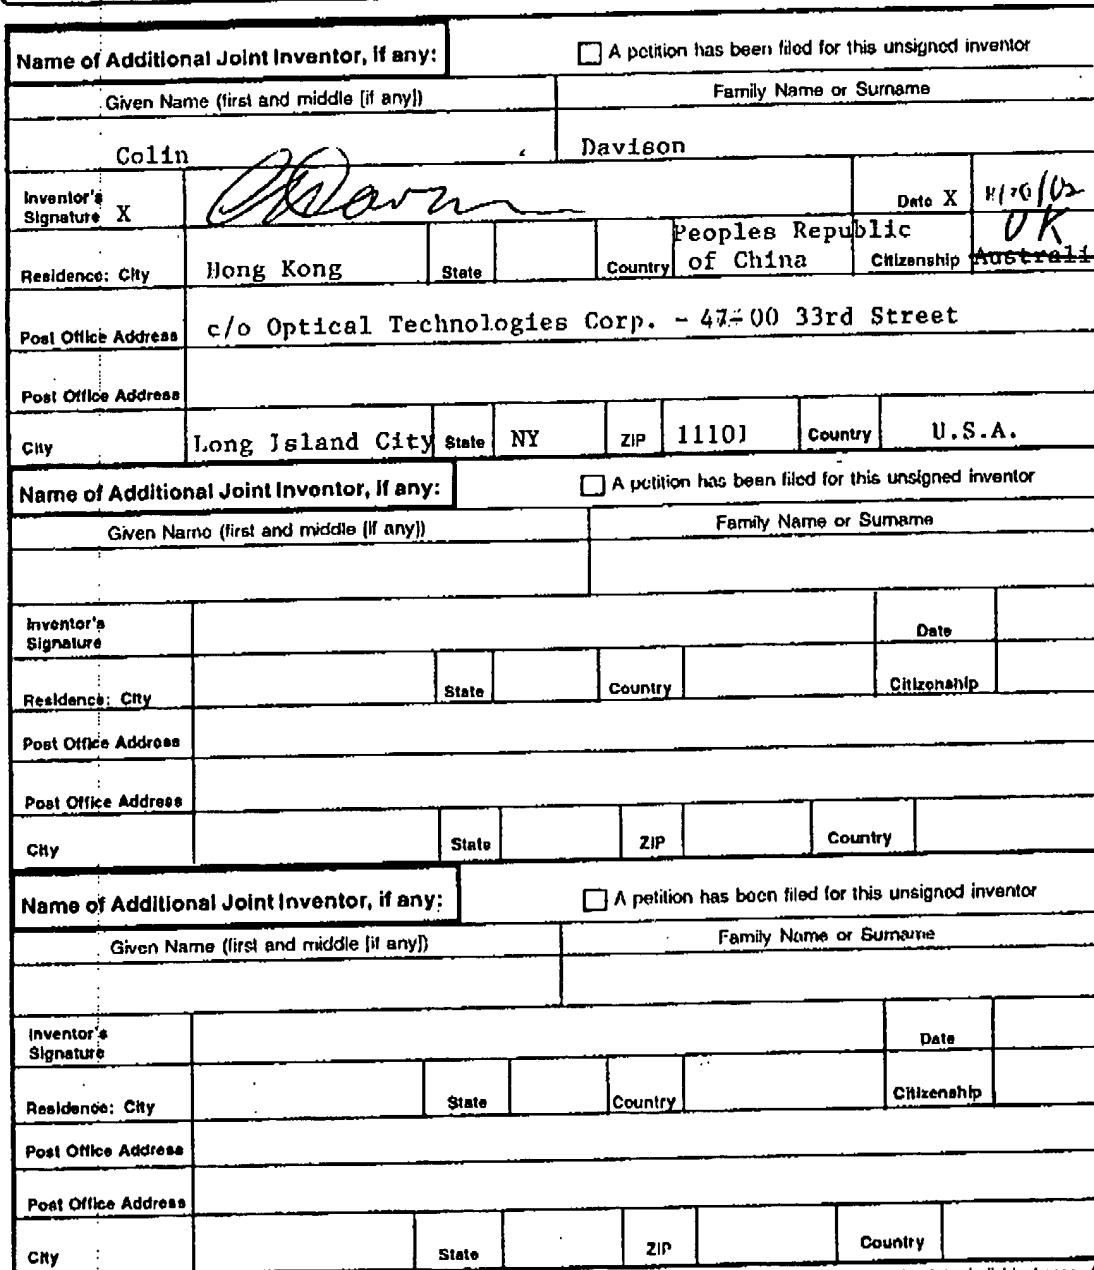 Name of Additional Joint Inventor, if any: A petition has been filed for this unsigned inventor
Given Name (first and middle [if any]) Family Name or Surname
Colin Davison
Inventor's Signature X Date X
Residence: City Hong Kong State Country Peoples Republic of China Citizenship UK Australi
Post Office Address c/o Optical Technologies Corp. - 47-00 33rd Street
Post Office Address
City Long Island City State NY ZIP 11101 Country U.S.A.
Name of Additional Joint Inventor, if any: A petition has been filed for this unsigned inventor
Given Name (first and middle [if any]) Family Name or Surname
Inventor's Signature Date
Residence: City State Country Citizenship
Post Office Address
Post Office Address
City State ZIP Country
Name of Additional Joint Inventor, if any: A petition has been filed for this unsigned inventor
Given Name (first and middle [if any]) Family Name or Surname
Inventor's Signature Date
Residence: City State Country Citizenship
Post Office Address
Post Office Address
City State ZIP Country